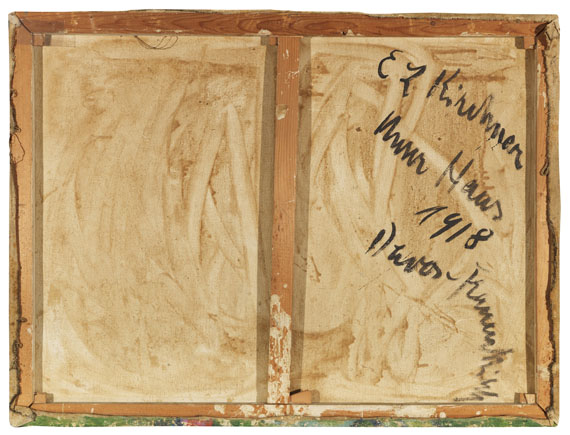 E L Kirchner
Haus
1918
Davos-Frauenkirch